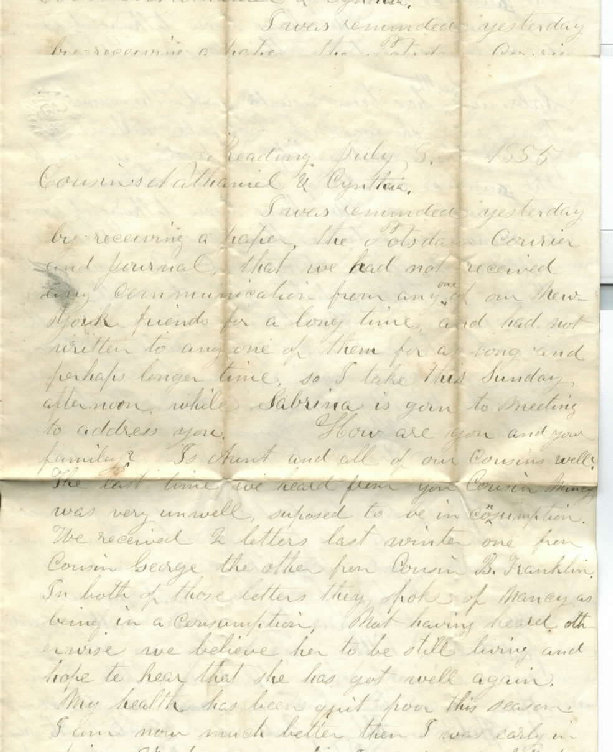 I was reminded yesterday
by receiving a paper, the Potsdam Courier
Reading July 8. 1855
Cousins Nathaniel & Cynthia,
I was reminded yesterday
by receiving a paper, the Potsdam Courier
and Journal, that we had not received
any communication from any one of our New
York friends for a long time, and had not
written to any one of them for as long and
perhaps longer time, so I take this Sunday
afternoon, while Sabrina is gorn to meeting
to address you. How are you and your
family? Is Aunt and all of our Cousins well?
The last time we heard from you Cousin Nancy
was very unwell, suposed to be in consumption.
We received 2 letters last winter one from
Cousin George the other from Cousin B. Franklin.
In both of those letters they spoke of Nancy as
being in a Consumption. Not having heard oth
erwise we believe her to be still living and
hope to hear that she has got well again.
My health has been quit poor this season
I am now much better then I was early in